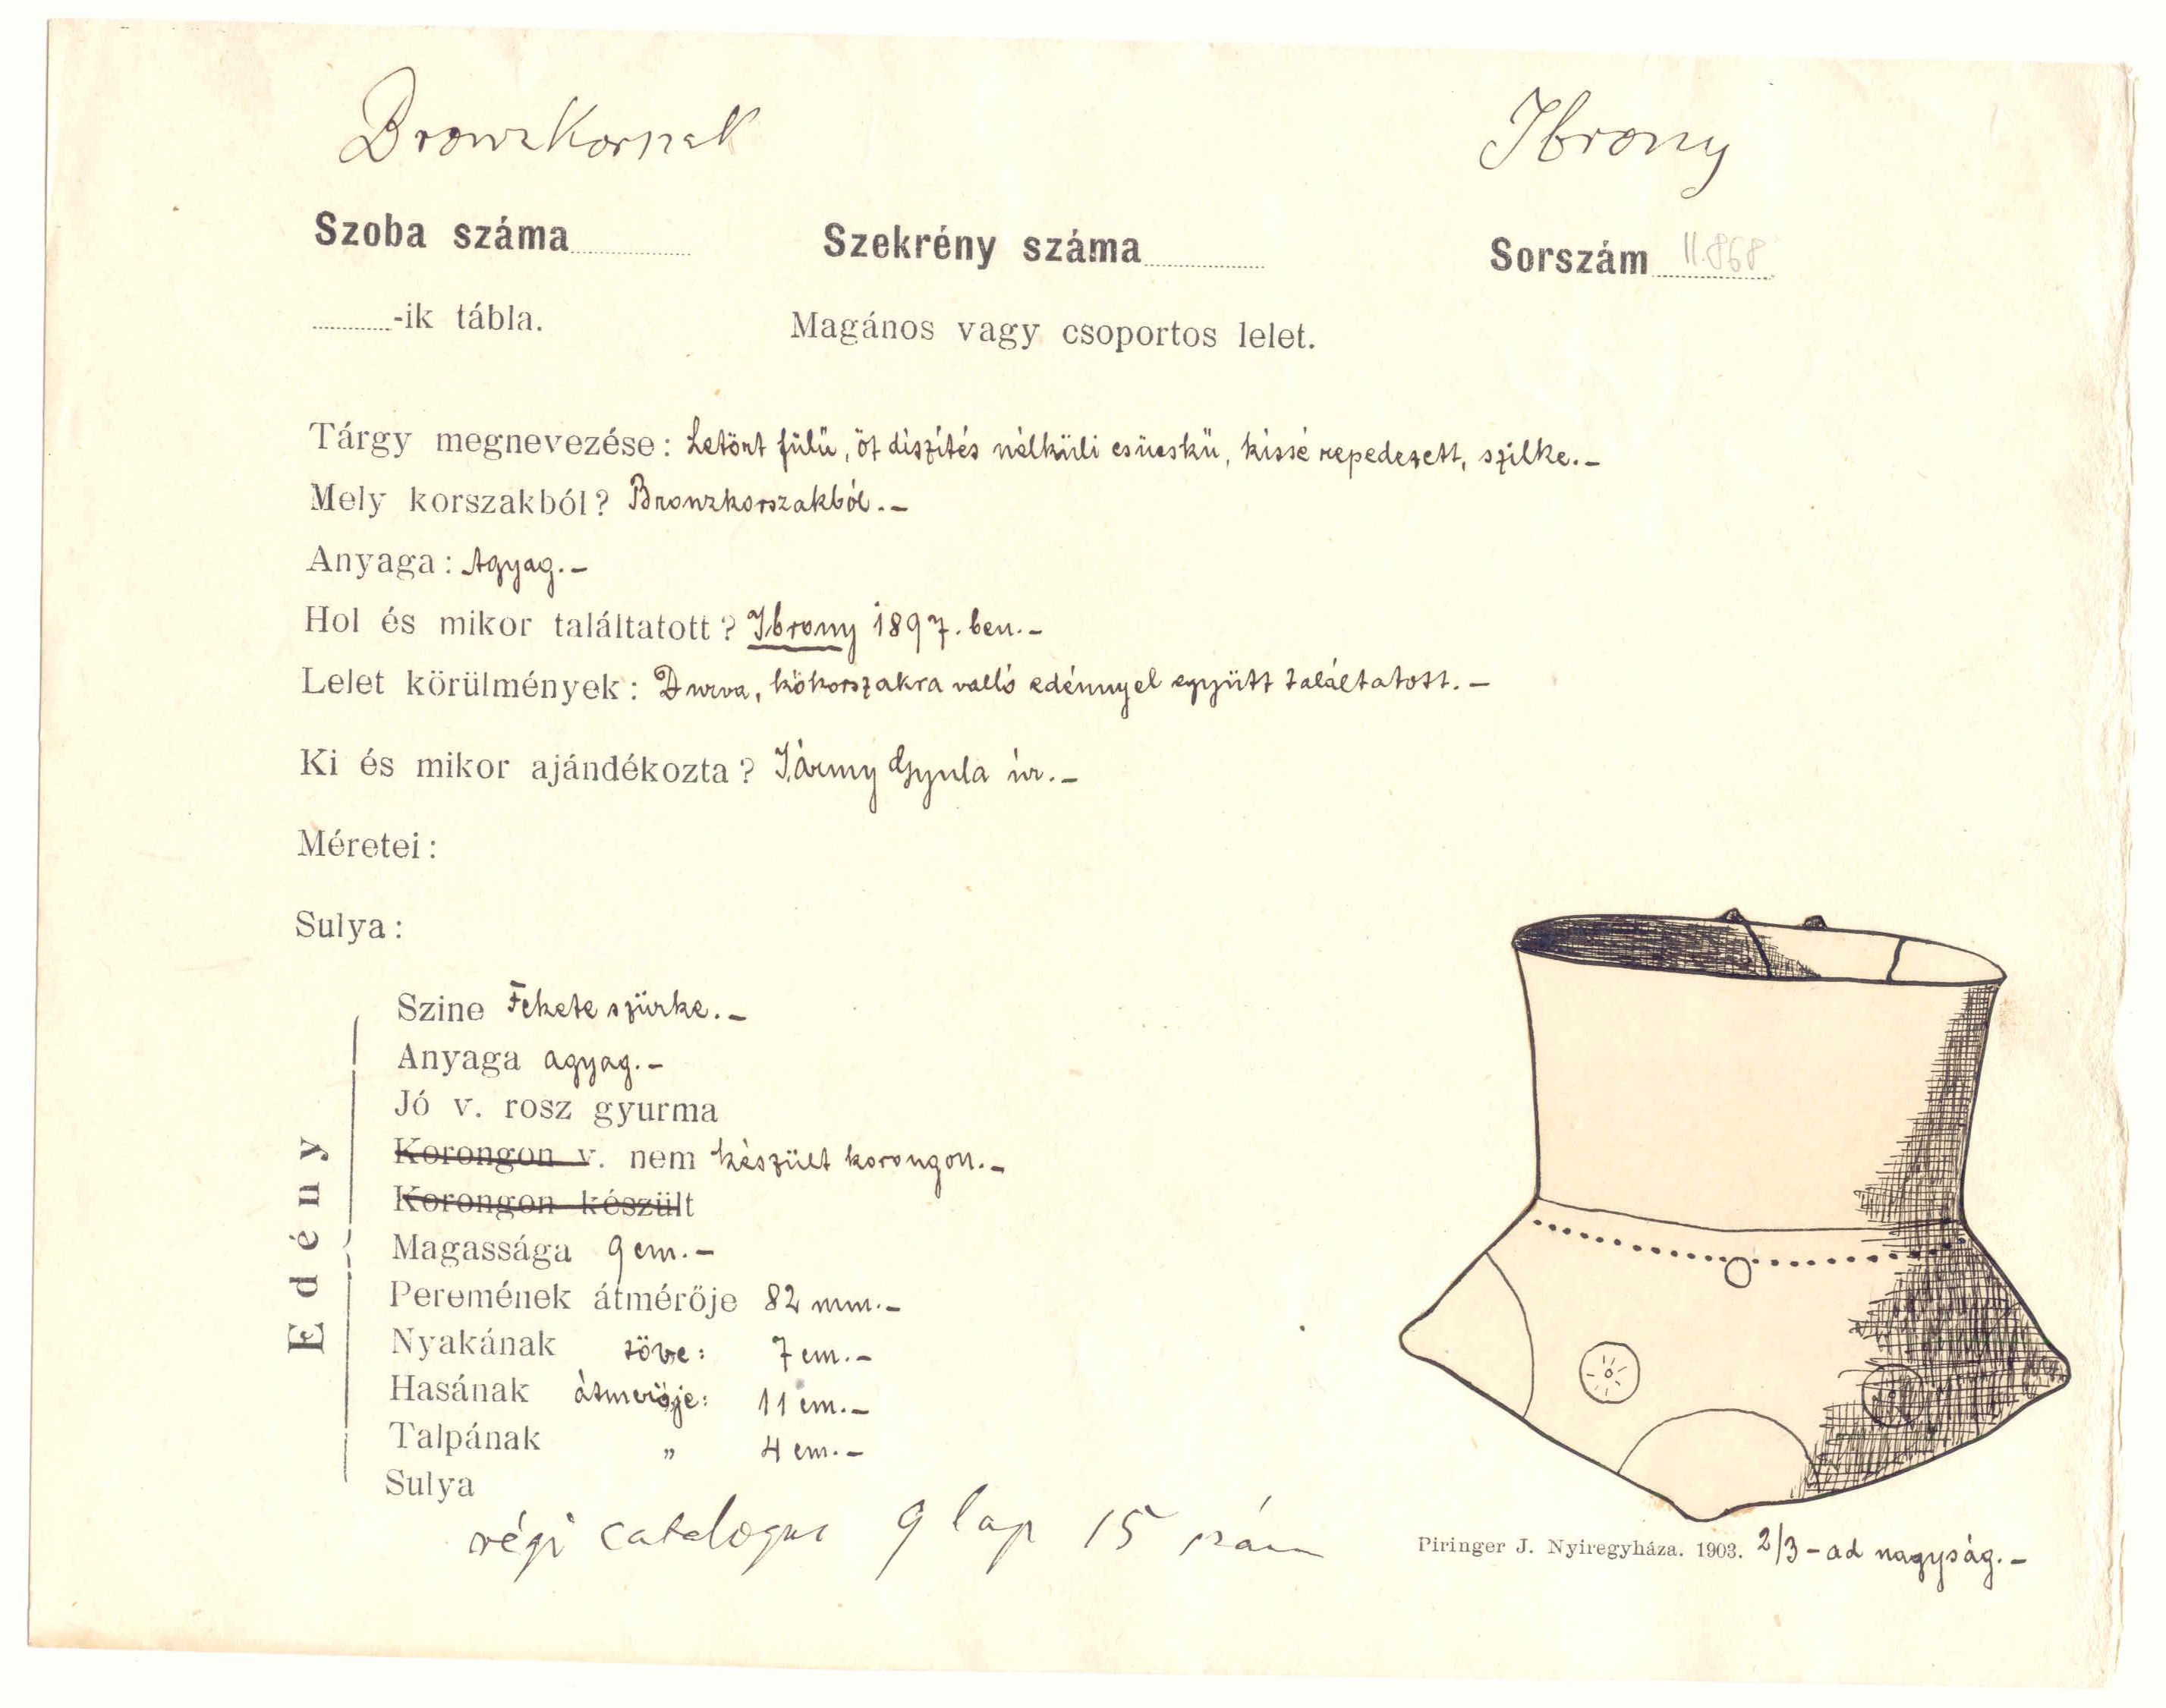 Bronzkorszak
Ibrony
Szoba száma
Szekrény száma
Sorszám 11.868
-ik tábla.
Magános vagy csoportos lelet.
Tárgy megnevezése: Letört fülü, öt díszítés nélküli csücskü, kissé repedezett, szilke.-
Mely korszakból? Bronzkorszakból.-
Anyaga: Agyag.-
Hol és mikor találtatott? Ibrony 1897.ben.-
Lelet körülmények: Durva, kőkorszakra valló edénnyel együtt találtatott.-
Ki és mikor ajándékozta? Jármy Gyula úr.-
Méretei:
Sulya:
Edény
Szine Fekete szürke.-
Anyaga agyag.-
Jó v. rosz gyurma
Korongon v. nem készült korongon.-
Korongon készült
Magassága 9 cm.-
Peremének átmérője 82 mm.-
Nyakának töve: 7 cm.-
Hasának átmérője: 11 cm.-
Talpának „ 4 cm.-
Sulya
régi catalogus 9 lap 15 szám
Piringer J. Nyiregyháza. 1903. 2/3-ad nagyság.-